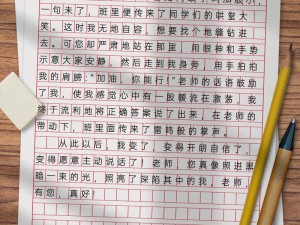 一句未了，班里便传来了同学们的哄堂大
笑。这时我无地自容，想要找个地缝钻进
去。可您却严肃地站在那里，用眼神和手势
示意大家安静，然后走到我面前，轻轻拍拍
我的肩膀:"加油，你能行!"老师的话语鼓励
了我，使我感觉心中有一股暖流在激荡，我
终于流利地将正确答案说了出来，在老师的
带动下，班里面传来了雷鸣般的掌声。
从此以后，我变了，变得开朗自信了，
变得愿意主动说话了!老师，您真像照进黑
暗一束的光，照亮了深陷其中的我，老师，
有您，真好!